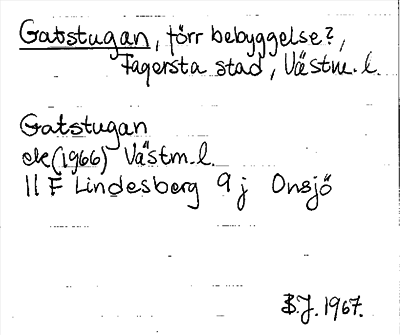 Gatstugan, förr bebyggelse?,
Fagersta stad, Västm.l.
Gatstugan
ek(1966) Västm.l.
11 F Lindesberg 9 j Onsjö
B.J. 1967.